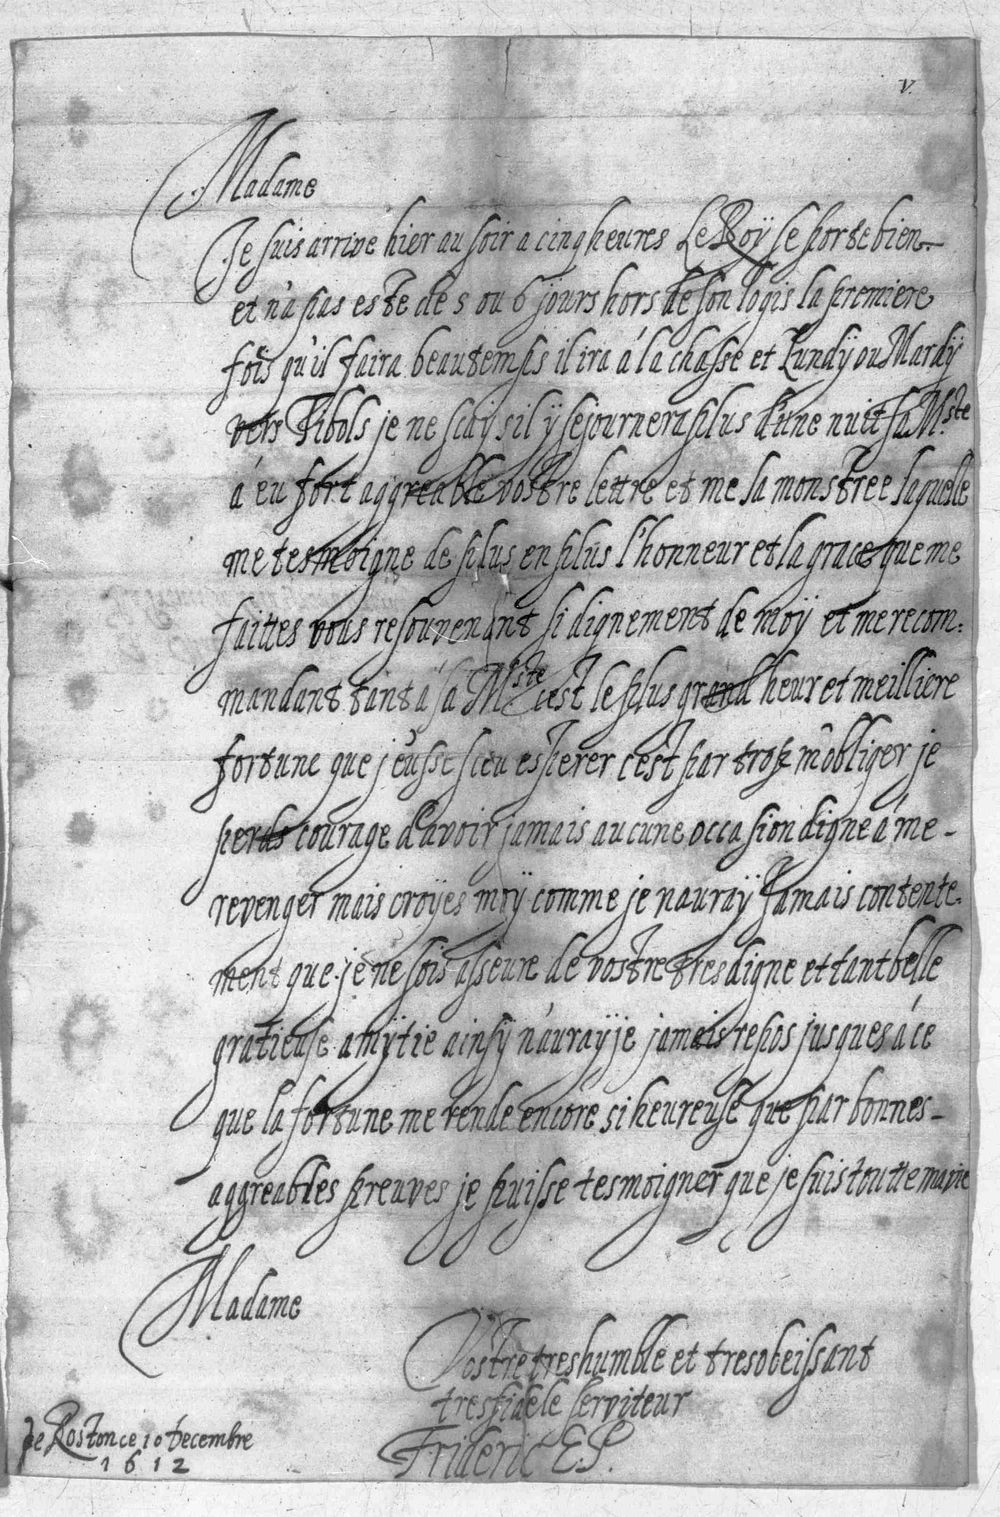 v.
Madame
Je suis arrive hier au soir a cinq heures Le Roÿ se porte bien
et n'a pas este de 5 ou 6 jours hors de son logis la premiere
fois qu'il faira beau temps il ira á la chasse et Lundÿ ou Mardÿ
vers Tibols je ne scaÿ sil ÿ sejournera plus d'une nuit sa M.ste
á eu fort aggreable vostre lettre et me la monstree laquelle
me tesmoigne de plus en plus l'honneur et la grace que me
faittes vous resouvenant si dignement de moÿ et me recom:
mandant tant á sa M.ste cest le plus grand heur et meilliere
fortune que j'eusse sceu esperer c'est par trop m'obliger je
perds courage d'avoir jamais aucune occasion digne á me-
revenger mais croÿes moÿ comme je nauraÿ jamais contente-
ment que je ne sois asseure de vostre tres digne et tant belle
gratieuse amÿtie ainsÿ n'auraÿ je jamais repos jusques á ce
que la fortune me rende encore si heureuse que par bonnes-
aggreables preuves je puisse tesmoigner que je suis toutte ma vie
Madame
Vostre treshumble et tresobeissant
tresfidele serviteur
Frideric E.P.
de Roston ce 10 decembre
1612